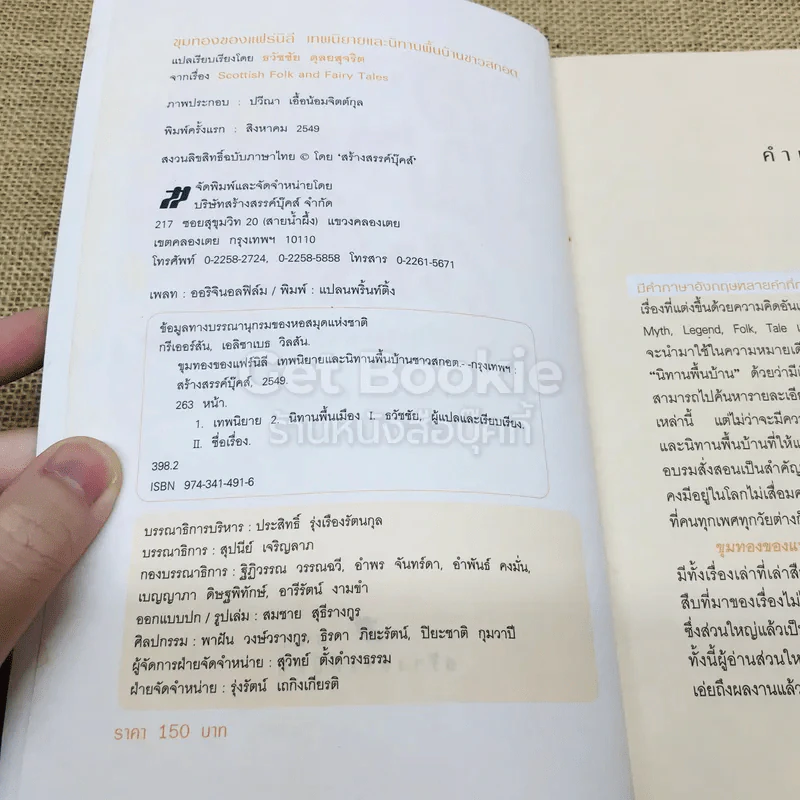 ขุมทองของแฟร์นิลี เทพนิยายและนิทานพื้นบ้านชาวสกอต
แปลเรียบเรียงโดย ธวัชชัย ดุลยสุจริต
จากเรื่อง Scottish Folk and Fairy Tales
ภาพประกอบ : ปวีณา เอื้อน้อมจิตต์กุล
พิมพ์ครั้งแรก : สิงหาคม 2549
สงวนลิขสิทธิ์ฉบับภาษาไทย © โดย "สร้างสรรค์บุ๊คส์"
จัดพิมพ์และจัดจำหน่ายโดย
บริษัทสร้างสรรค์บุ๊คส์ จำกัด
217 ซอยสุขุมวิท 20 (สายน้ำผึ้ง) แขวงคลองเตย
เขตคลองเตย กรุงเทพฯ 10110
โทรศัพท์ 0-2258-2724, 0-2258-5858 โทรสาร 0-2261-5671
เพลท : ออริจินอลฟิล์ม / พิมพ์ : แปลนพริ้นท์ติ้ง
ข้อมูลทางบรรณานุกรมของหอสมุดแห่งชาติ
กรีเออร์สัน, เอลิซาเบธ วิลสัน.
ขุมทองของแฟร์นิลี เทพนิยายและนิทานพื้นบ้านชาวสกอต.--กรุงเทพฯ :
สร้างสรรค์บุ๊คส์, 2549.
263 หน้า.
1. เทพนิยาย 2. นิทานพื้นเมือง I. ธวัชชัย, ผู้แปลและเรียบเรียง.
II. ชื่อเรื่อง.
398.2
ISBN 974-341-491-6
Get Bookie
ร้านหนังสือบุ๊คกี้
บรรณาธิการบริหาร : ประสิทธิ์ รุ่งเรืองรัตนกุล
บรรณาธิการ : สุปนีย์ เจริญลาภ
กองบรรณาธิการ : ฐิฏิวรรณ วรรณฉวี, อำพร จันทร์ดา, อำพันธ์ คงมั่น,
เบญญาภา ดิษฐพิทักษ์, อารีรัตน์ งามขำ
ออกแบบปก / รูปเล่ม : สมชาย สุธีรางกูร
ศิลปกรรม : พาฝัน วงษ์วรางกูร, ธิรดา ภิยะรัตน์, ปิยะชาติ กุมวาปี
ผู้จัดการฝ่ายจัดจำหน่าย : สุวิทย์ ตั้งดำรงธรรม
ฝ่ายจัดจำหน่าย : รุ่งรัตน์ เถกิงเกียรติ
ราคา 150 บาท
มีคำภาษาอังกฤษหลายคำที่
เรื่องที่แต่งขึ้นด้วยความคิดอัน
Myth, Legend, Folk, Tale
จะนำมาใช้ในความหมาย
"นิทานพื้นบ้าน" ด้วยว่ามี
สามารถไปค้นหารายละเอีย
เหล่านี้ แต่ไม่ว่าจะมีคว
และนิทานพื้นบ้านที่ให้
อบรมสั่งสอนเป็นสำคัญ
คงมีอยู่ในโลกไม่เสื่อม
ที่คนทุกเพศทุกวัยต่าง
ขุมทองของแ
มีทั้งเรื่องเล่าที่เล่า
สืบที่มาของเรื่อง
ซึ่งส่วนใหญ่แล้วเป็
ทั้งนี้ผู้อ่านส่วนให
เอ่ยถึงผลงานแล้ว